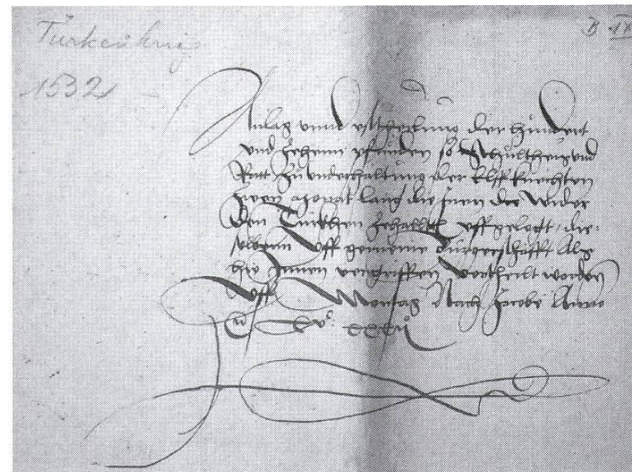 Türkenkrieg
1532
B IX
Anlag vnnd vßtheilung der hundert
vnd zehenn pfunden so Schultheis vnd
Ratt zu vnderhaltung der Elff knechten
zwen monat lang die Inen der wider
den Türckhen zehalten vffgelegt, die-
selbenn vff gemeine Burgerschafft Als
hie Innen vergriffen vertheilt worden
Vff Montag Nach Jacobi Anno
XVc XXXII